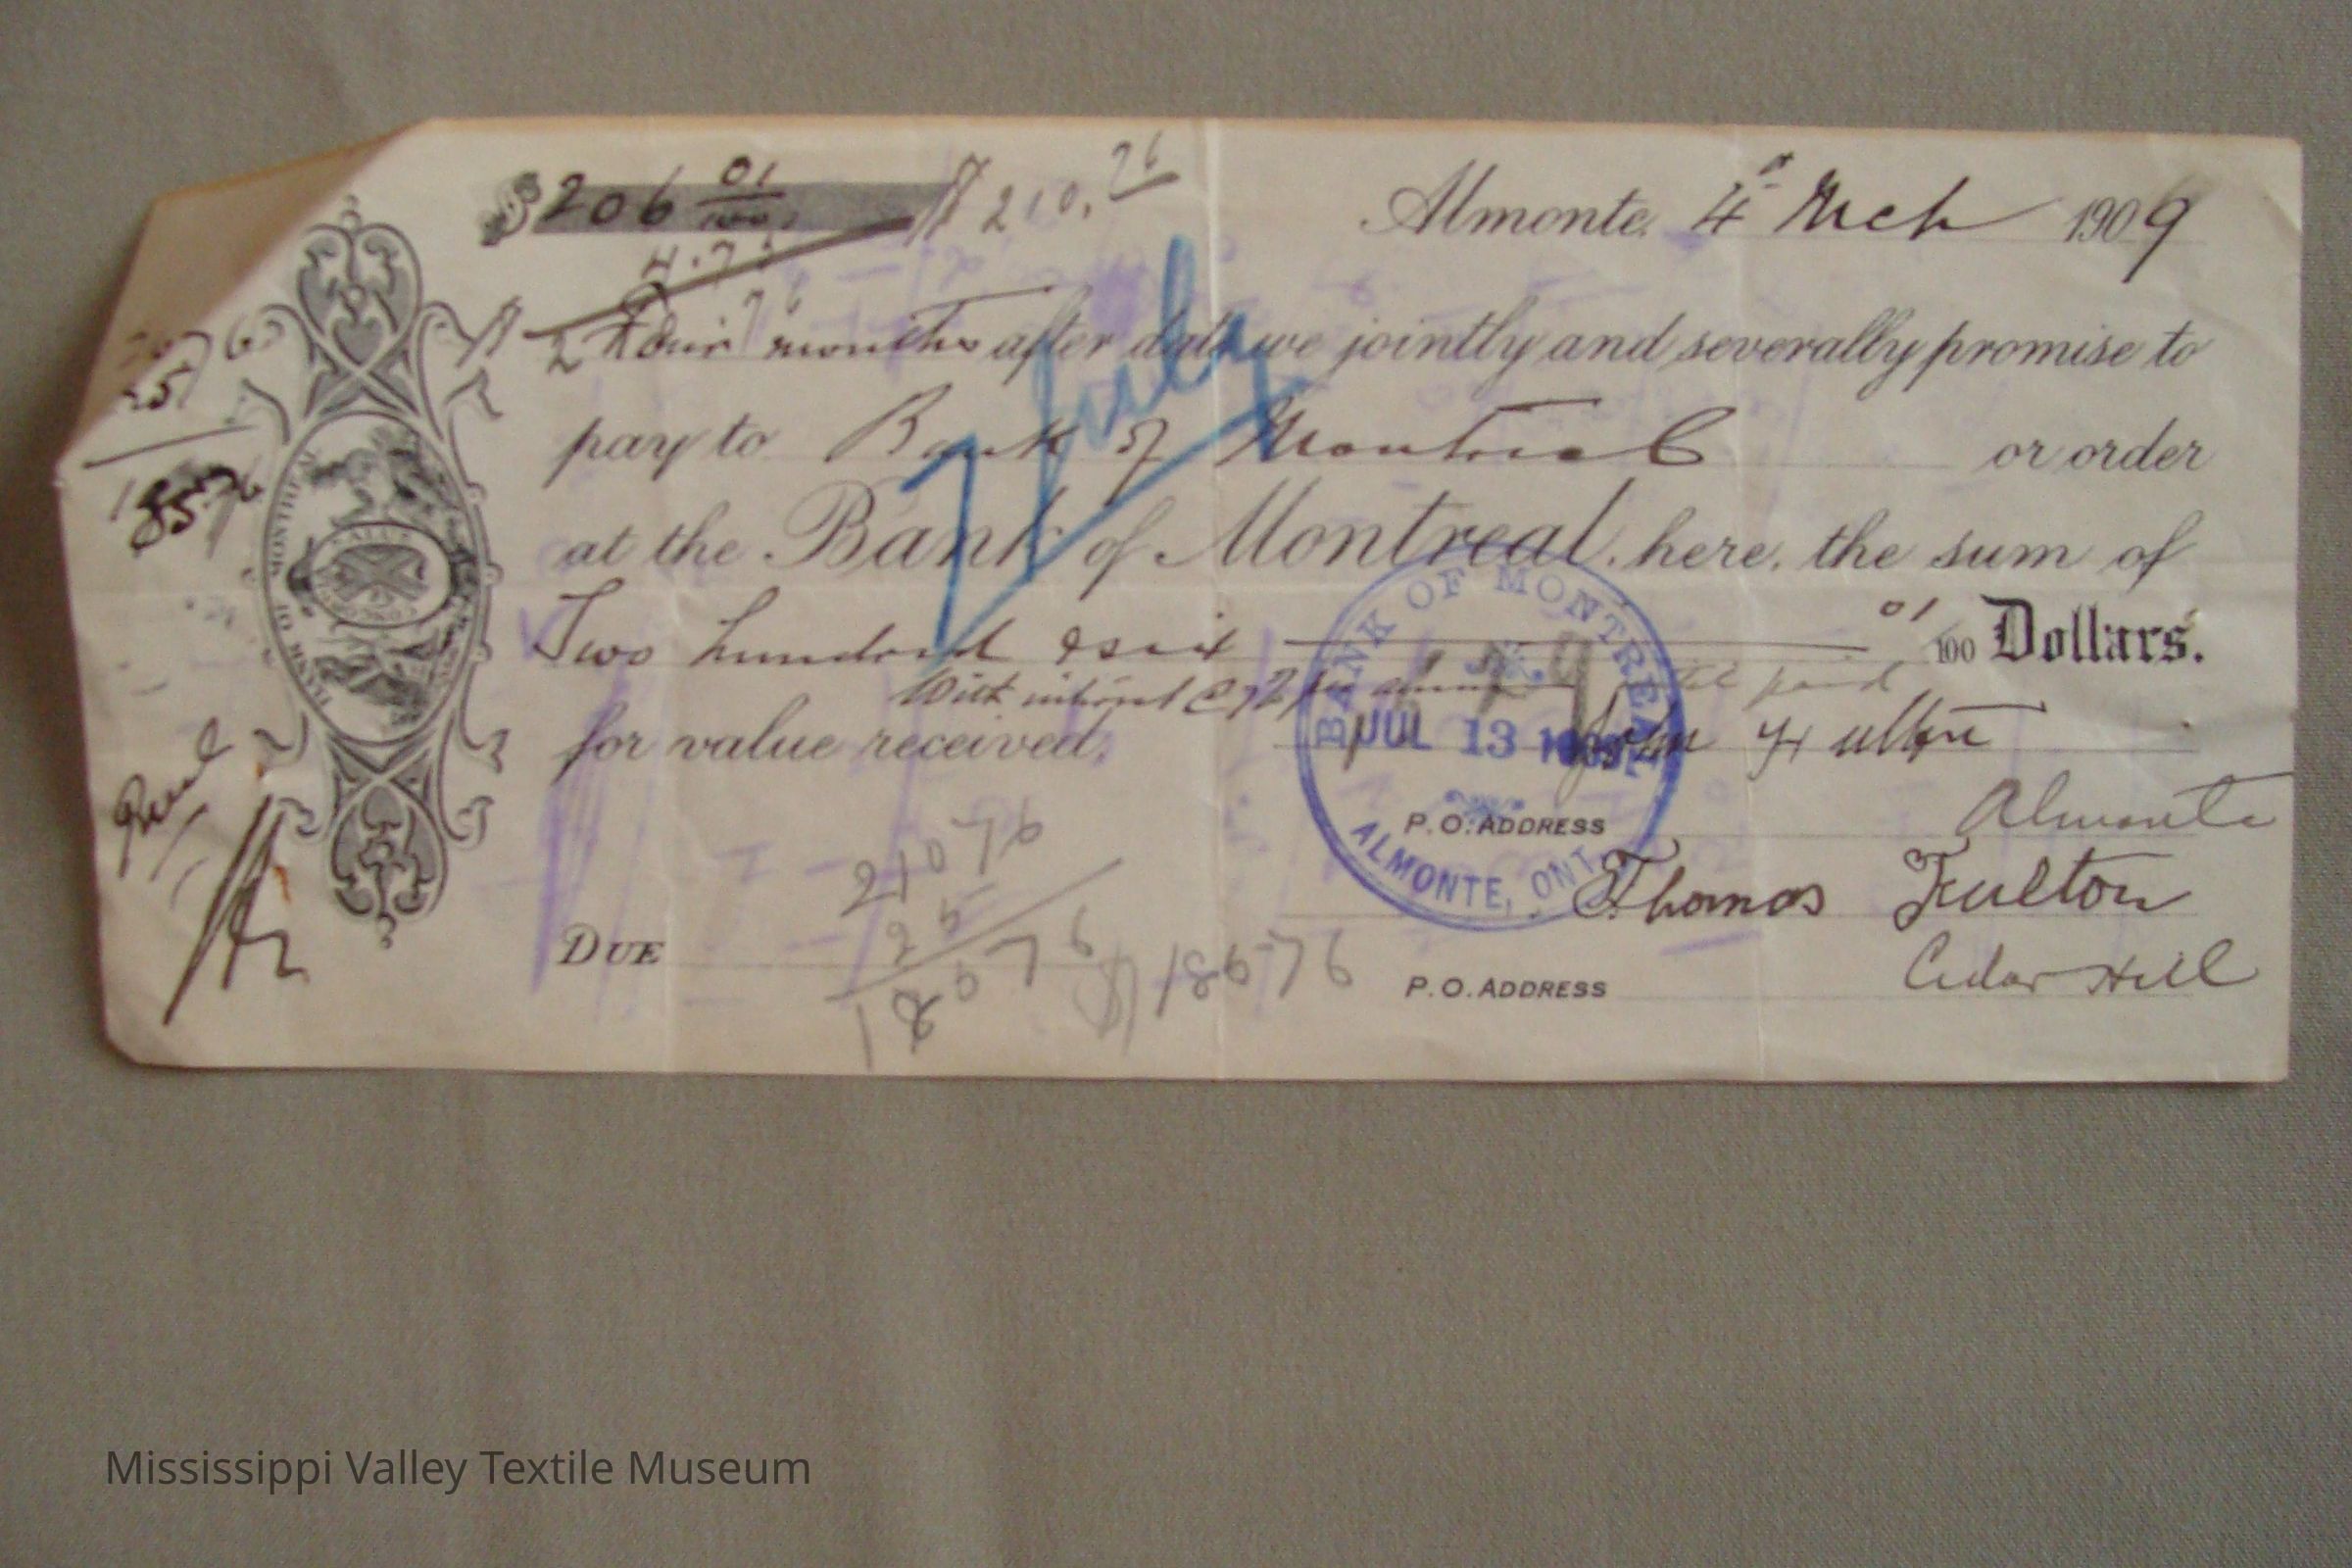 $206 01/100 $210.76
Almonte, 4th Mch 1909
4.75
Four months after date we jointly and severally promise to
pay to Bank of Montreal or order
at the Bank of Montreal, here, the sum of
Two hundred & six 01/100 Dollars.
With interest @ 7% per annum until paid
for value received.
7 July
BANK OF MONTREAL
JUL 13 1909
ALMONTE, ONT.
John Fulton
P.O. ADDRESS Almonte
Thomas Fulton
P.O. ADDRESS Cedar Hill
DUE
210 76
25
185 76
$185 76
BANK OF MONTREAL
Mississippi Valley Textile Museum